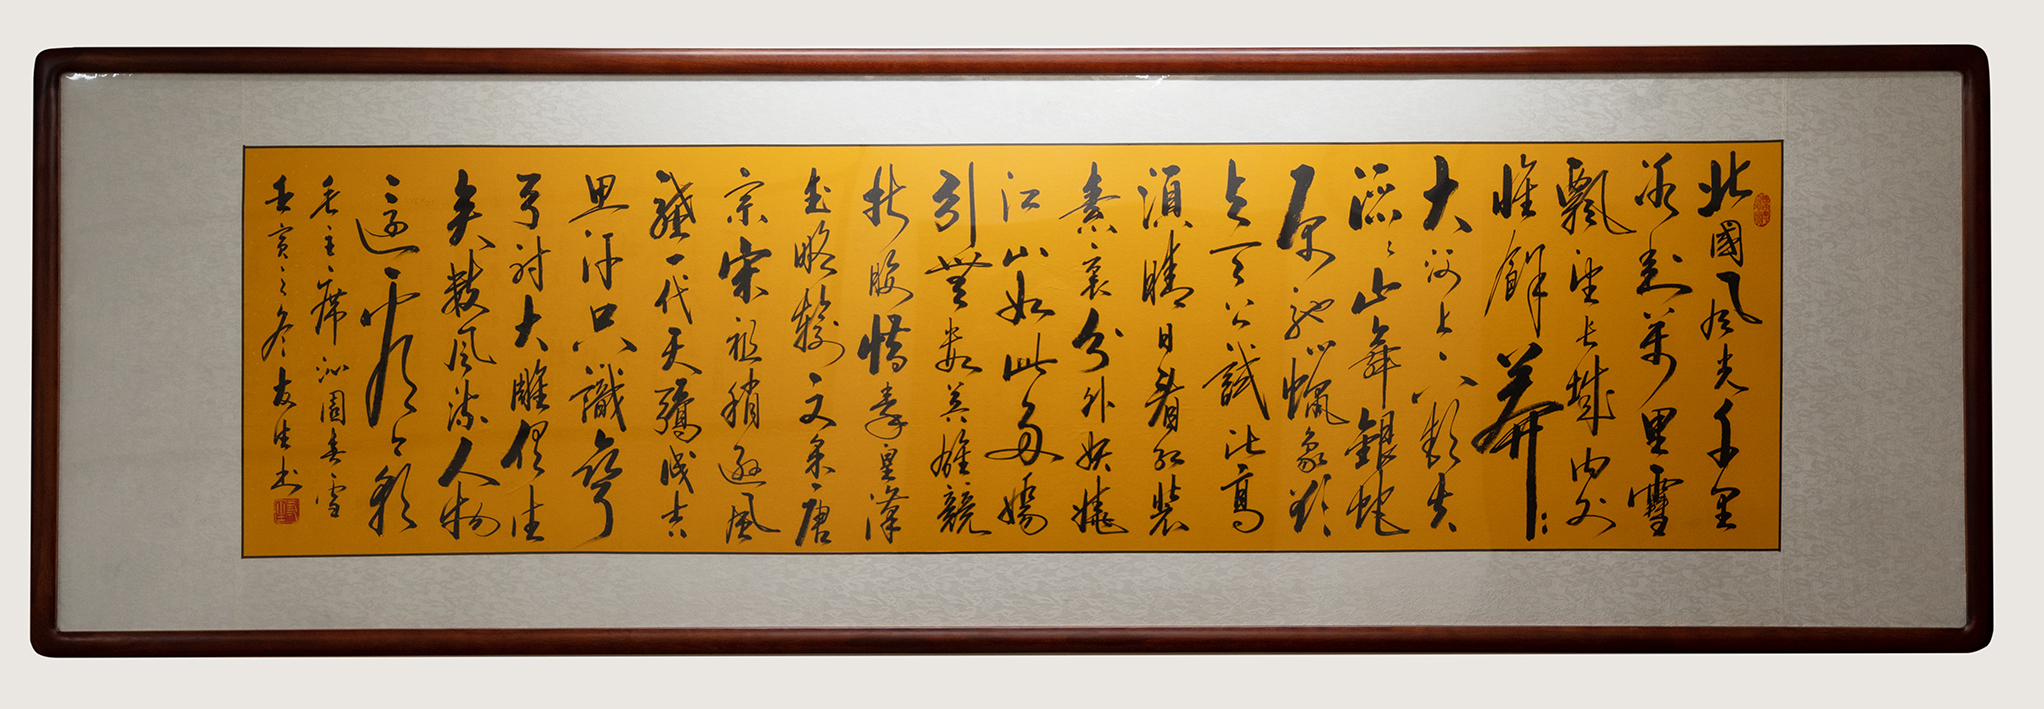 北國風光千里
冰封萬里雪
飄望長城内外
惟餘莽々
大河上下頓失
滔々山舞銀蛇
原馳蠟象欲
與天公試比高
須晴日看紅裝
素裹分外妖嬈
江山如此多嬌
引無數英雄競
折腰惜秦皇漢
武略輸文采唐
宗宋祖稍遜風
騷一代天驕成吉
思汗只識彎
弓射大雕俱往
矣數風流人物
還看今朝
毛主席沁園春雪
壬寅之冬友生书